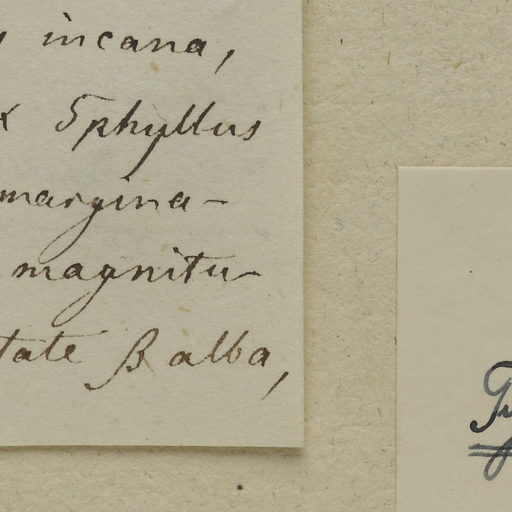 incana,
5phyllus
margina-
magnitu-
tate β alba,